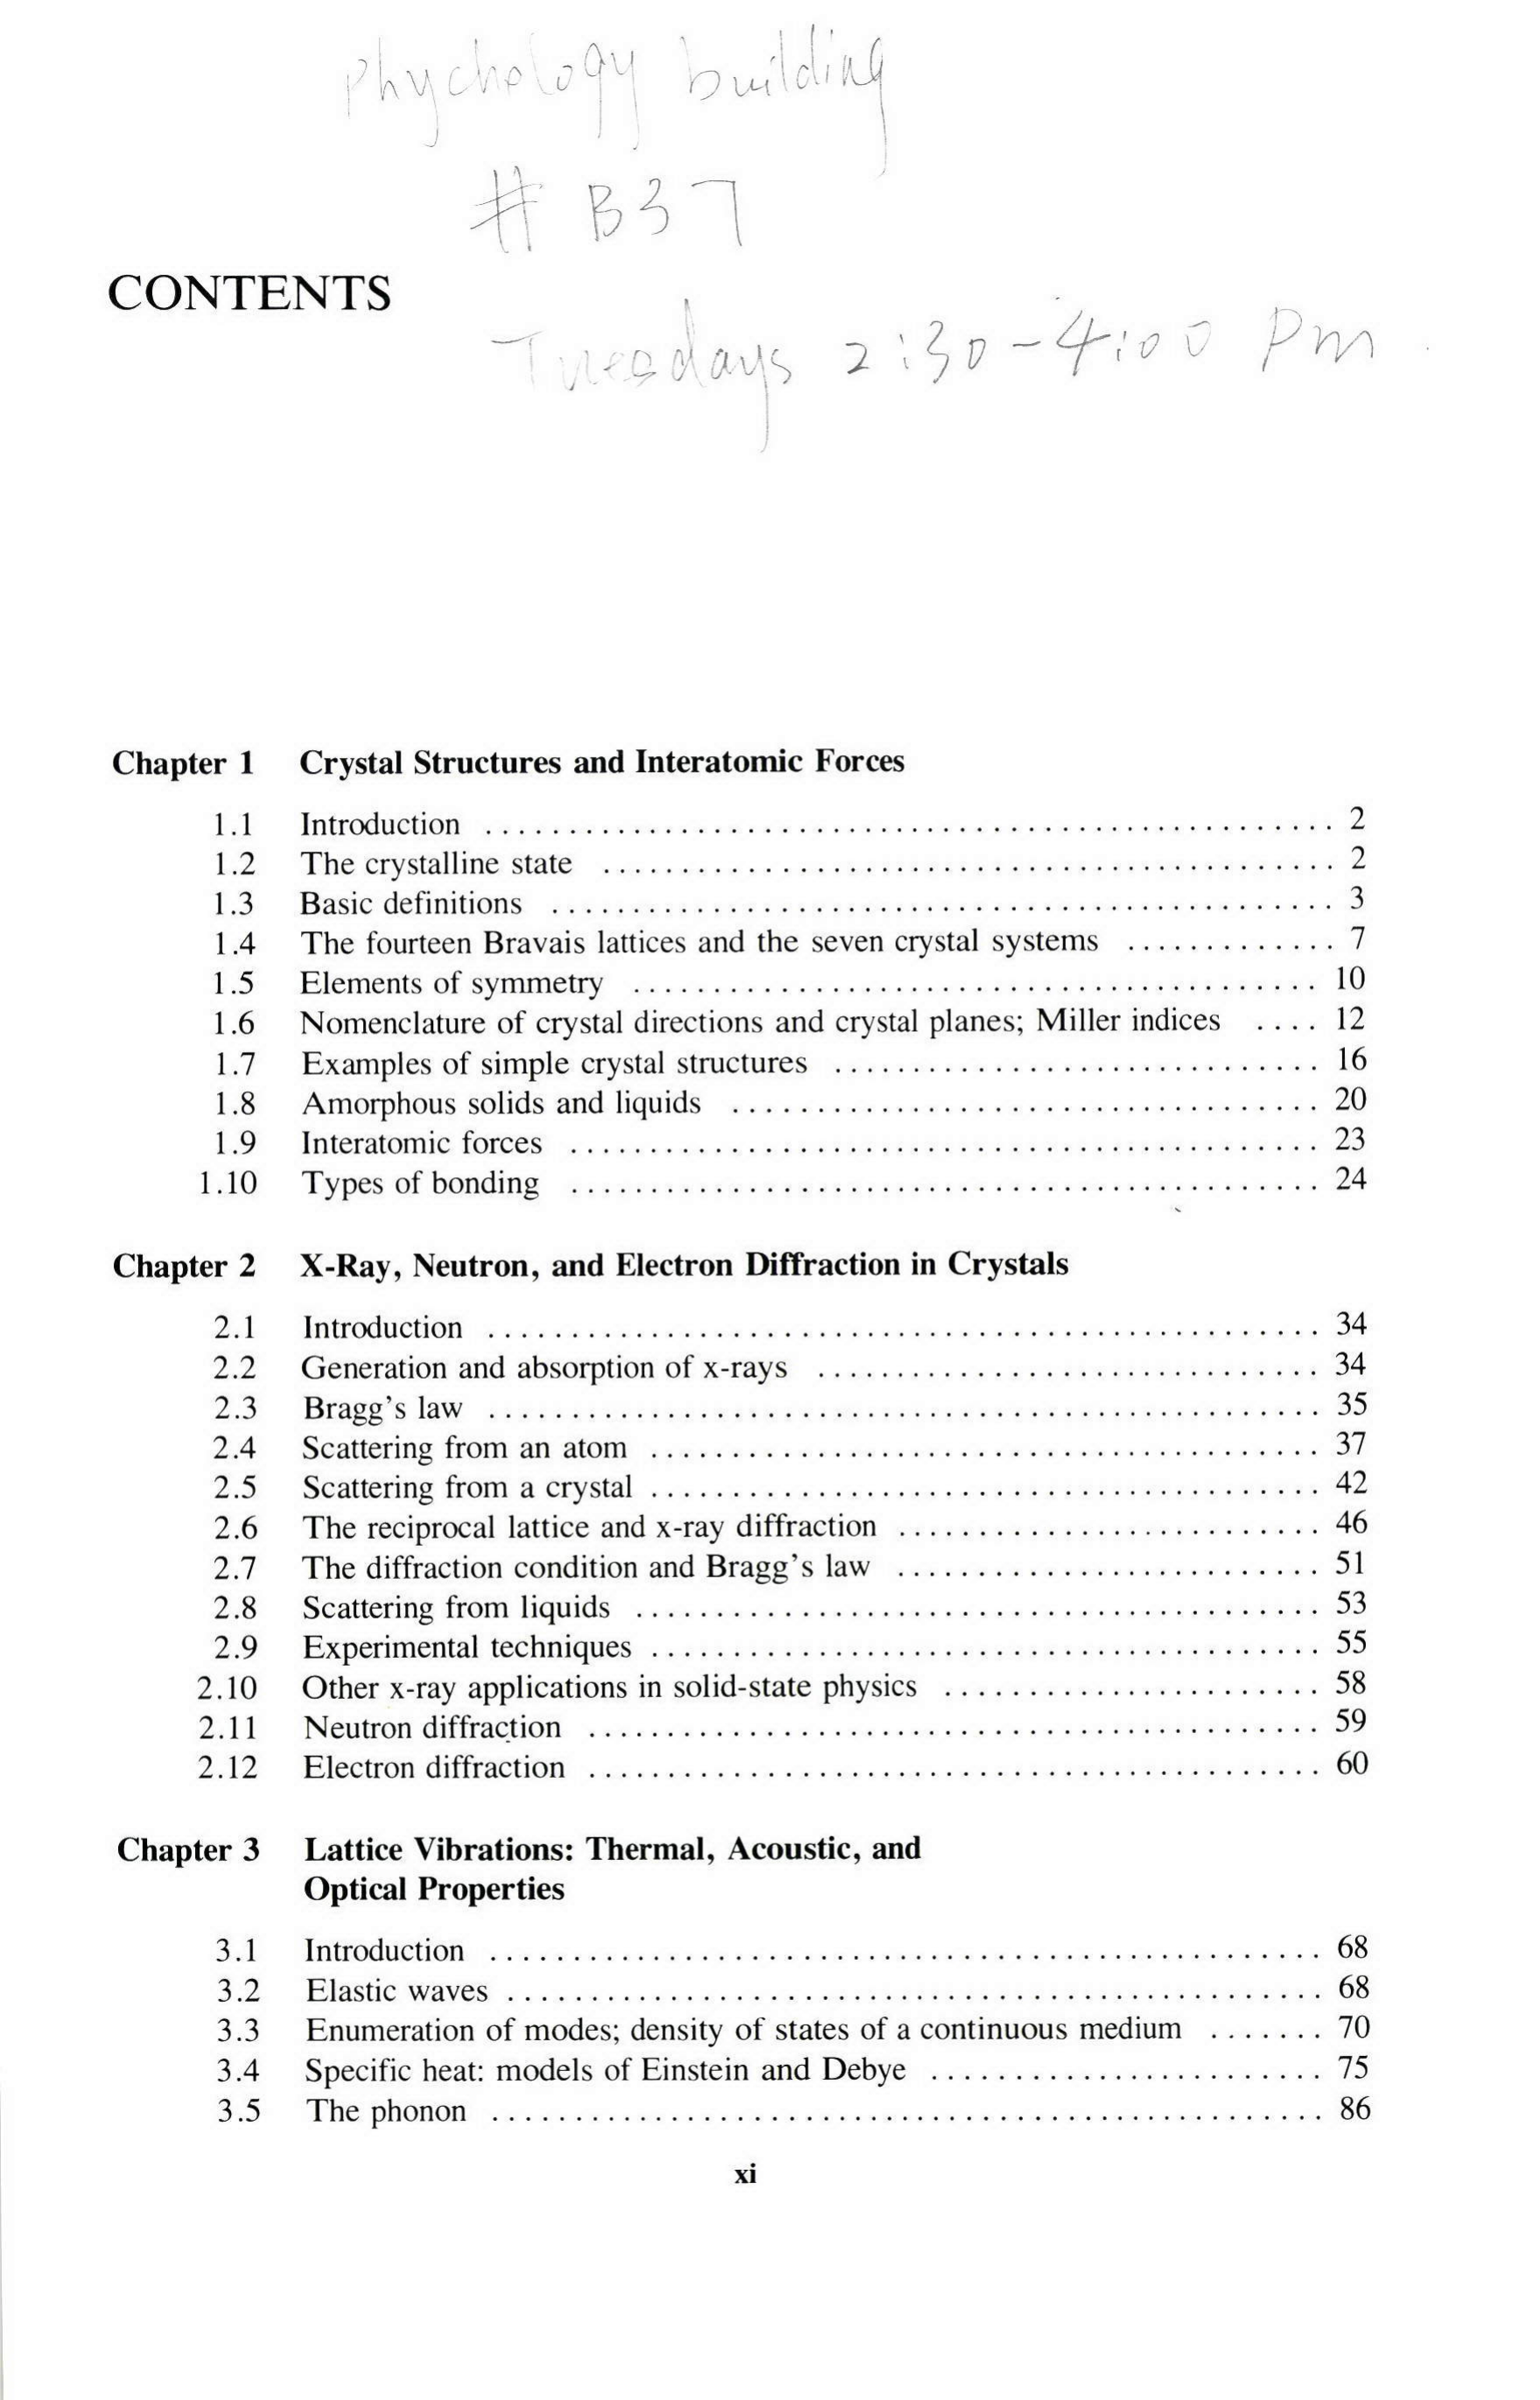 Phychology building
# B37
CONTENTS
Tuesdays 2:30-4:00 Pm
Chapter 1 Crystal Structures and Interatomic Forces
1.1 Introduction 2
1.2 The crystalline state 2
1.3 Basic definitions 3
1.4 The fourteen Bravais lattices and the seven crystal systems 7
1.5 Elements of symmetry 10
1.6 Nomenclature of crystal directions and crystal planes; Miller indices 12
1.7 Examples of simple crystal structures 16
1.8 Amorphous solids and liquids 20
1.9 Interatomic forces 23
1.10 Types of bonding 24
Chapter 2 X-Ray, Neutron, and Electron Diffraction in Crystals
2.1 Introduction 34
2.2 Generation and absorption of x-rays 34
2.3 Bragg's law 35
2.4 Scattering from an atom 37
2.5 Scattering from a crystal 42
2.6 The reciprocal lattice and x-ray diffraction 46
2.7 The diffraction condition and Bragg's law 51
2.8 Scattering from liquids 53
2.9 Experimental techniques 55
2.10 Other x-ray applications in solid-state physics 58
2.11 Neutron diffraction 59
2.12 Electron diffraction 60
Chapter 3 Lattice Vibrations: Thermal, Acoustic, and
Optical Properties
3.1 Introduction 68
3.2 Elastic waves 68
3.3 Enumeration of modes; density of states of a continuous medium 70
3.4 Specific heat: models of Einstein and Debye 75
3.5 The phonon 86
xi